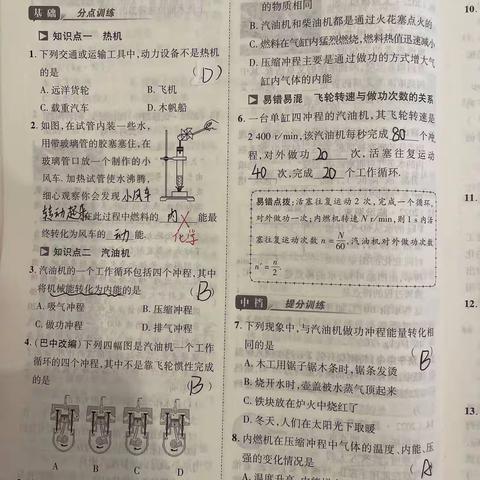 基础 分点训练
知识点一 热机
1. 下列交通或运输工具中,动力设备不是热机
的是 (D)
A. 远洋货轮 B. 飞机
C. 载重汽车 D. 木帆船
2. 如图,在试管内装一些水,
用带玻璃管的胶塞塞住,在
玻璃管口放一个制作的小
风车. 加热试管使水沸腾,
细心观察你会发现小风车
转动起来 在此过程中燃料的 内 能最
化学
终转化为风车的 动 能.
知识点二 汽油机
3. 汽油机的一个工作循环包括四个冲程,其中
将机械能转化为内能的是 (B)
A. 吸气冲程 B. 压缩冲程
C. 做功冲程 D. 排气冲程
4. (巴中改编)下列四幅图是汽油机一个工作
循环的四个冲程,其中不是靠飞轮惯性完成
的是 (B)
A B C D
的物质相同
B. 汽油机和柴油机都是通过火花塞点火的
C. 燃料在气缸内猛烈燃烧,燃料热值迅速减小
D. 压缩冲程主要是通过做功的方式增大气
缸内气体的内能
易错易混 飞轮转速与做功次数的关系
6. 一台单缸四冲程的汽油机,其飞轮转速是
2 400 r/min,该汽油机每秒完成 80 个冲
程,对外做功 20 次,活塞往复运动
40 次,完成 20 个工作循环.
易错点拨:活塞往复运动 2 次,完成一个循环,
对外做功一次;内燃机转速 N r/min,则 1 s 内活
塞往复运动次数 n=N/60,汽油机对外做功次数
n′=n/2.
中档 提分训练
7. 下列现象中,与汽油机做功冲程能量转化相
同的是 (B)
A. 木工用锯子锯木条时,锯条发烫
B. 烧开水时,壶盖被水蒸气顶起来
C. 铁块放在炉火中烧红了
D. 冬天,人们在太阳光下取暖
8. 内燃机在压缩冲程中气体的温度、内能、压
强的变化情况是 (A
10.
11.
12.
13.